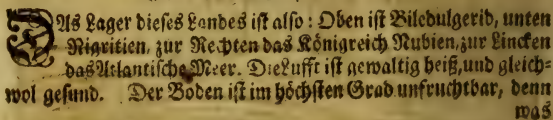 DAs Lager dieses Landes ist also: Oben ist Bilebulgerid, unten
Nigritien, zur Rechten das Königreich Nubien, zur Lincken
das Atlantische Meer. Die Lufft ist gewaltig heiß, und gleich-
wol gesund. Der Boden ist im höchsten Grad unfruchtbar, denn
was